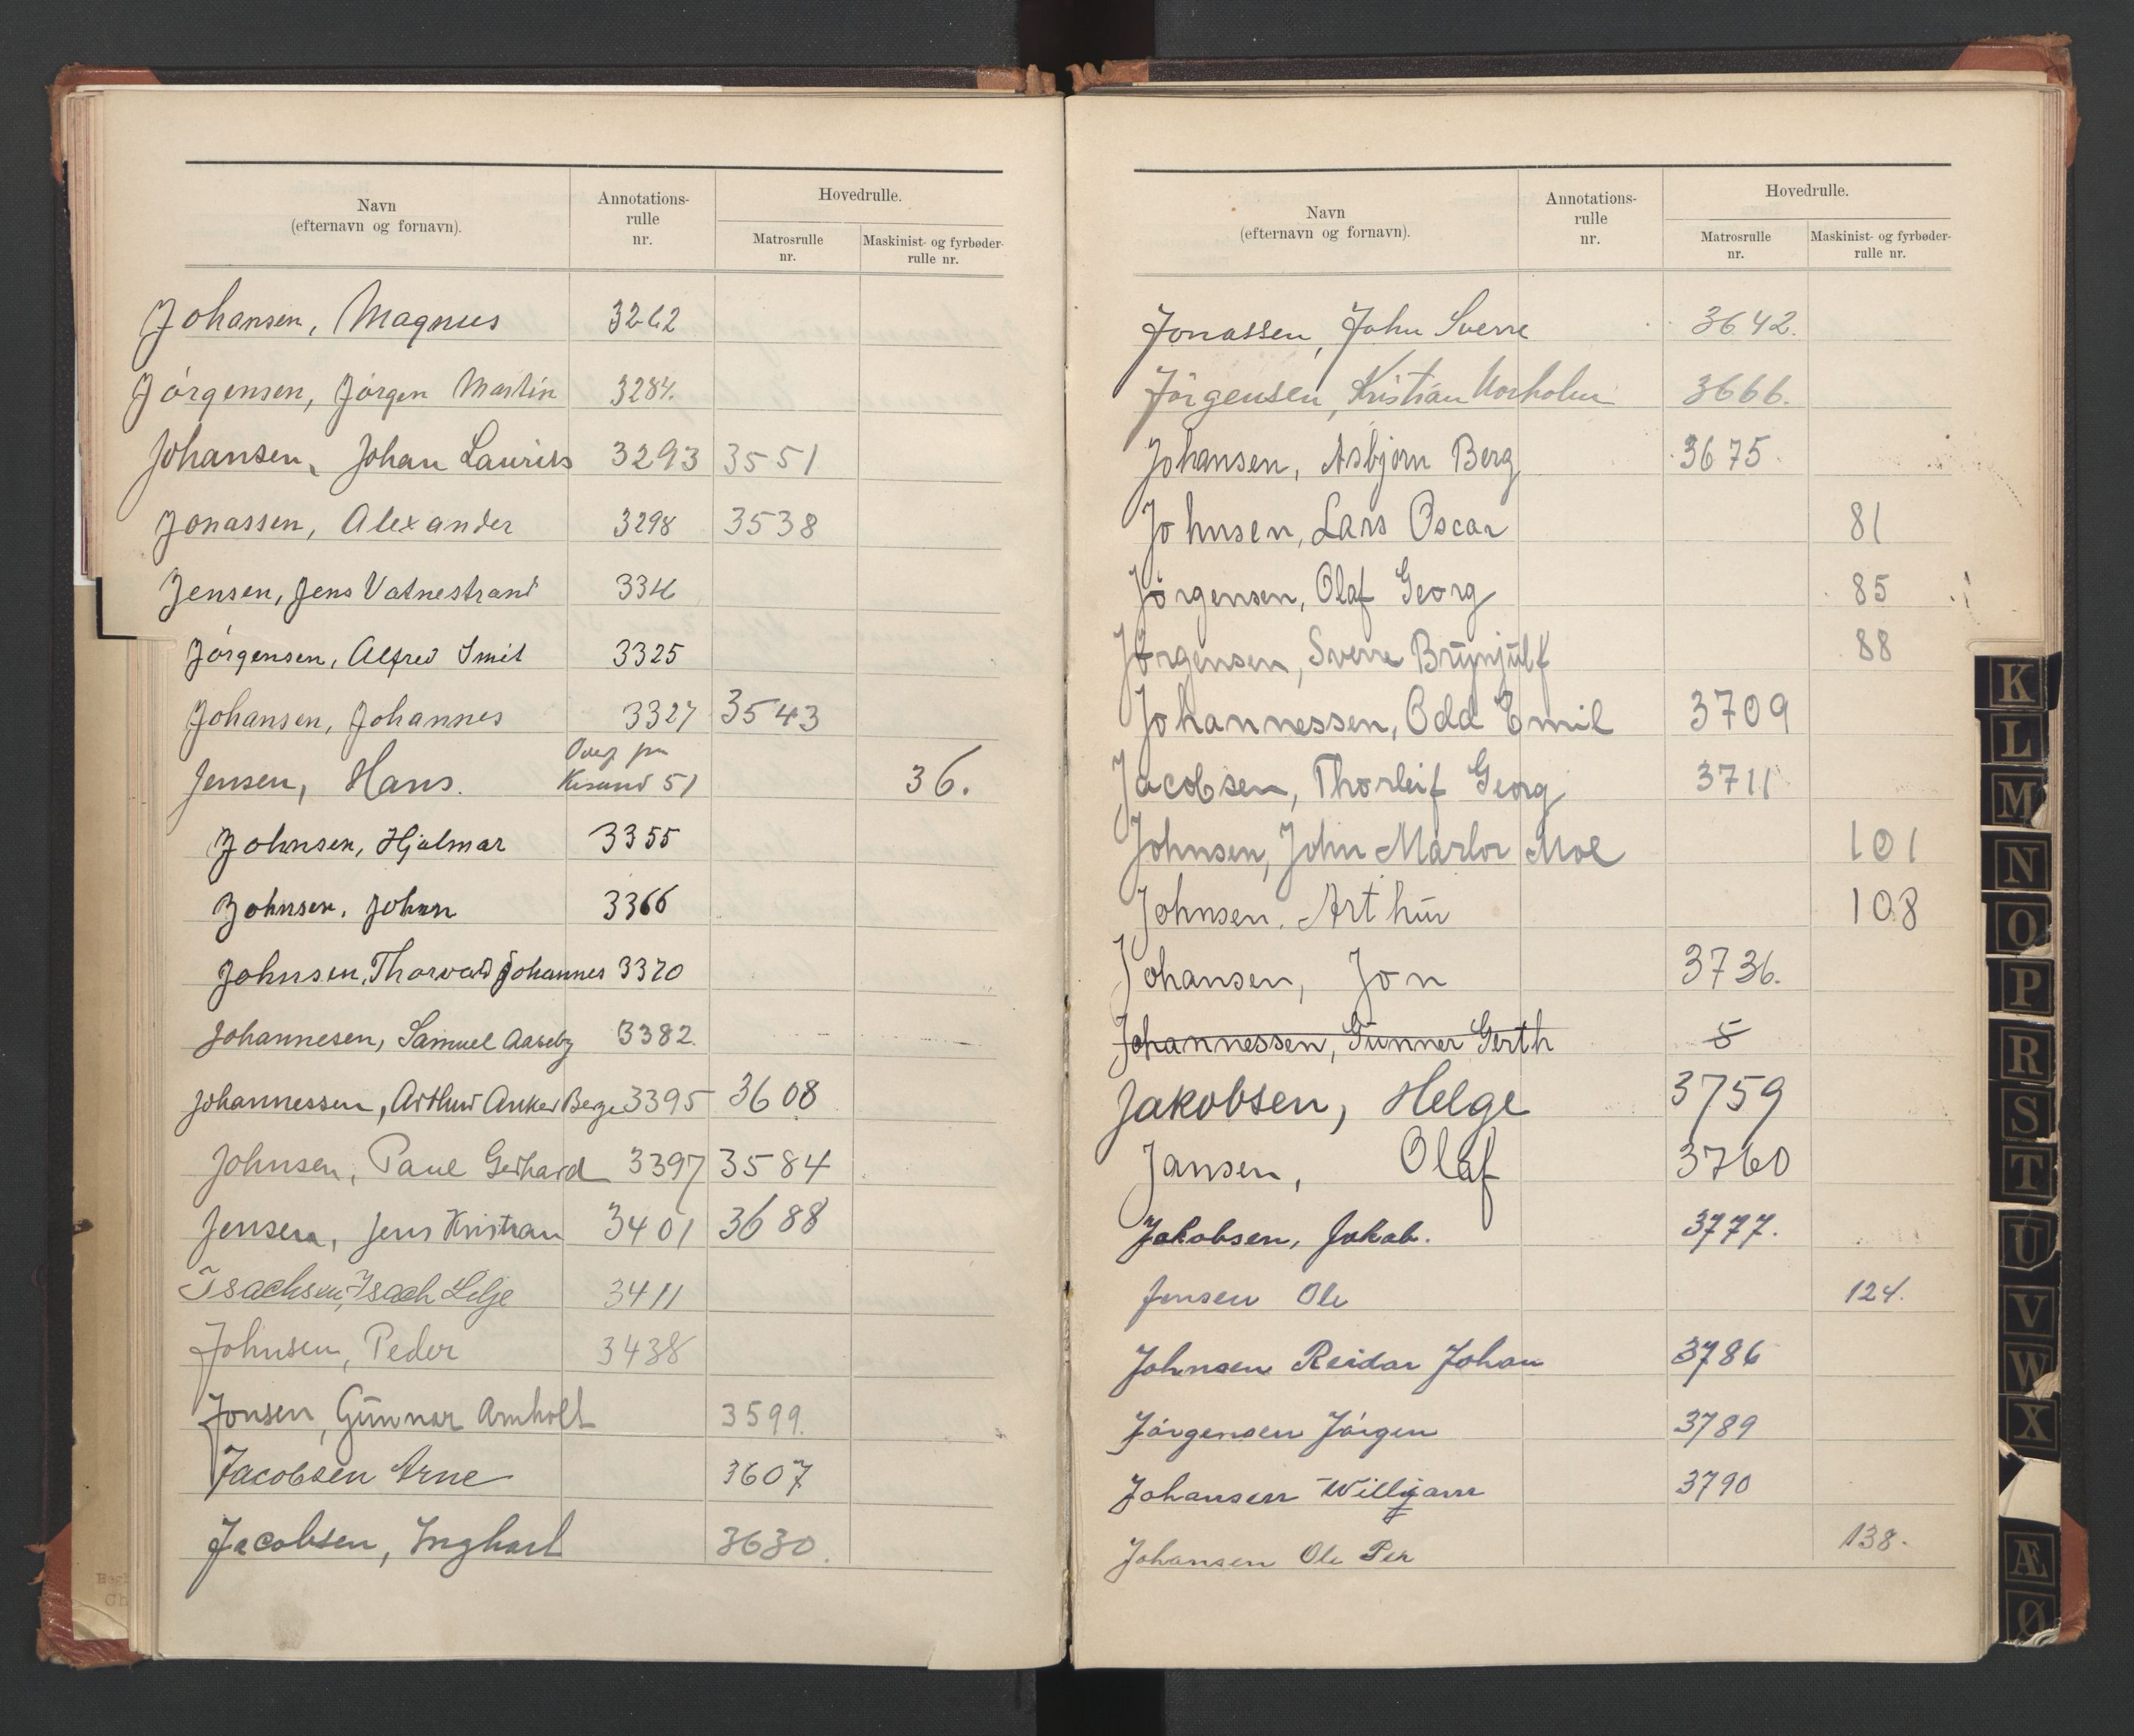 Navn
(efternavn og fornavn).
Annotations-
rulle
nr.
Hovedrulle.
Matrosrulle
nr.
Maskinist- og fyrbøder-
rulle nr.
Johansen, Magnus 3262
Jörgensen, Jörgen Martin 3284.
Johansen, Johan Laurits 3293 3551
Jonassen, Alexander 3298 3538
Jensen, Jens Vatnestrand
Jörgensen, Alfred Smit 3325
Johansen, Johannes 3327 3543
Jensen, Hans. 51 36.
Johnsen, Hjalmar 3355
Johnsen, Johan 3366
Johnsen, Thorvald Johannes 3370
Johannesen, Samuel 3382.
Johannessen, Arthur Anker Berge 3395 3608
Johnsen, Paul Gerhard 3397 3584
Jensen, Jens Kristian 3401 3688
Isachsen, Isach Lilje 3411
Johnsen, Peder 3438
Jonsen, Gunnar Arnholt 3599.
Jacobsen Arne 3607
Jacobsen, 3630.
Navn
(efternavn og fornavn).
Annotations-
rulle
nr.
Hovedrulle.
Matrosrulle
nr.
Maskinist- og fyrbøder-
rulle nr.
Jonassen, John Sverre 3642.
Jörgensen, Kristian 3666.
Johansen, Asbjørn Berg 3675.
Johnsen, Lars Oscar 81
Jörgensen, Olaf Georg 85
Jörgensen, Sverre Brynjulf 88
Johannessen, Odd Emil 3709
Jacobsen, Thorleif Georg 3711
Johnsen, John Moe 101
Johnsen, Arthur 108
Johansen, Jon 3736.
Johannessen, Gunner Gerth 5
Jakobsen, Helge 3759
Jansen, Olaf 3760
Jakobsen, Jakob. 3777.
Jensen Ole 124.
Johnsen Reidar Johan 3786
Jörgensen Jörgen 3789
Johansen Willijam 3790
Johansen Ole Per 138.
K
L
M
N
O
P
R
S
T
U
V
W
X
Æ
Ø